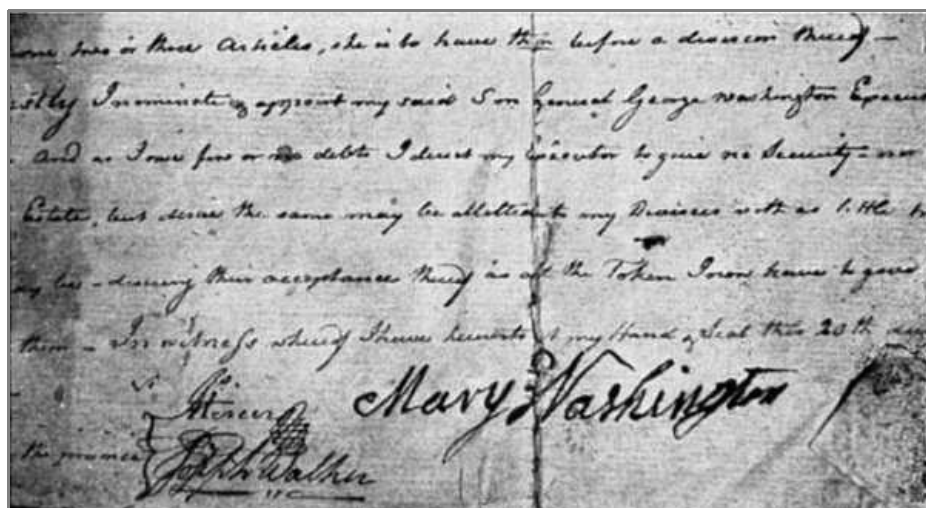 two or three Articles, she is to have them before a division thereof –
Lastly I nominate & appoint my said Son General George Washington Execu
And as I owe few or no debts I direct my Executor to give no Security – nor
Estate, but desire the same may be allotted to my Devisees with as little
may be – desiring their acceptance thereof as all the Token I now have to give
them – In witness whereof I have hereunto set my Hand & Seal this 20th day
Mary Washington
Mercer
the presence
Joseph Walker